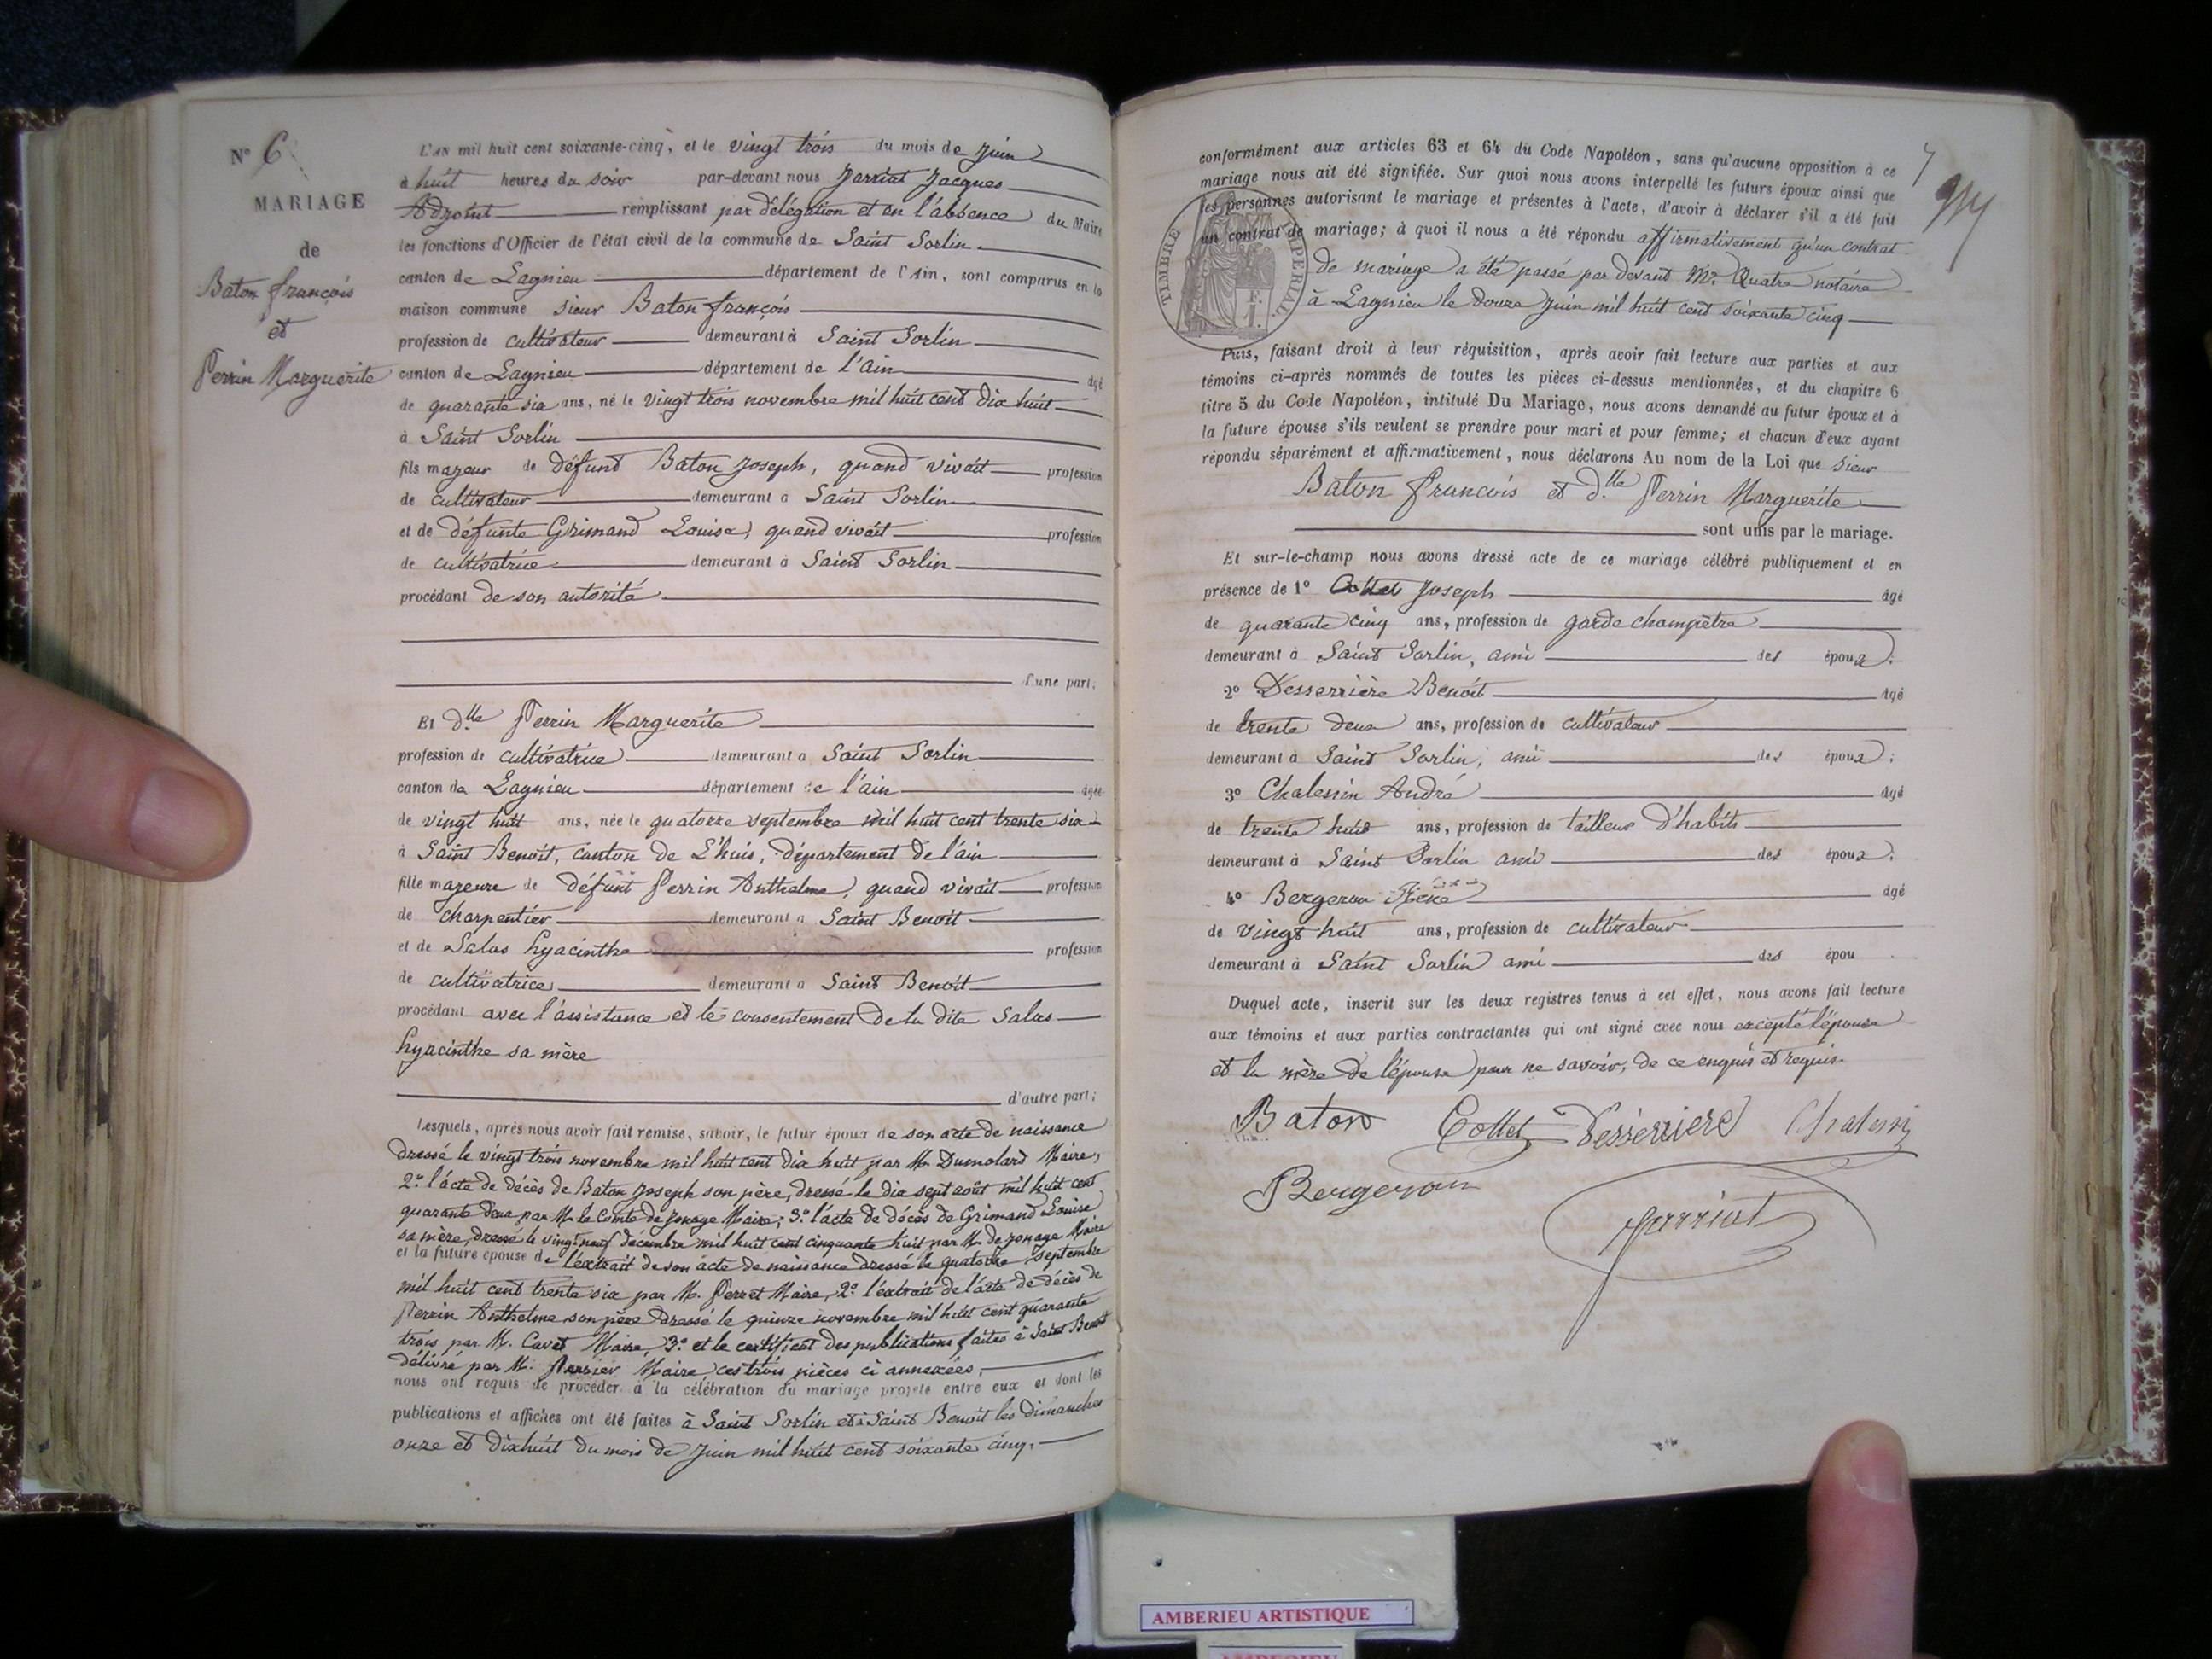 N° 6
MARIAGE
de
Baton françois
et
Perrin Marguerite
L'AN mil huit cent soixante-cinq, et le vingt trois du mois de juin
à huit heures du soir par-devant nous Jarriat Jacques
Adjoint remplissant par délégation et en l'absence du Maire
les fonctions d'Officier de l'état civil de la commune de Saint Sorlin
canton de Lagnieu département de l'Ain, sont comparus en la
maison commune sieur Baton françois
profession de cultivateur demeurant à Saint Sorlin
canton de Lagnieu département de l'ain âgé
de quarante six ans, né le vingt trois novembre mil huit cent dix huit
à Saint Sorlin
fils majeur de défund Baton Joseph, quand vivait profession
de cultivateur demeurant à Saint Sorlin
et de défunte Grimand Louise, quand vivait profession
de cultivatrice demeurant à Saint Sorlin
procédant de son autorité
d'une part;
Et dlle Perrin Marguerite
profession de cultivatrice demeurant à Saint Sorlin
canton de Lagnieu département de l'ain âgée
de vingt huit ans, née le quatorze septembre mil huit cent trente six
à Saint Benoit, canton de L'huis, département de l'ain
fille majeure de défunt Perrin Anthelme, quand vivait profession
de charpentier demeurant à Saint Benoit
et de Salas hyacinthe profession
de cultivatrice demeurant à Saint Benoit
procédant avec l'assistance et le consentement de la dite Salas
hyacinthe sa mère
d'autre part;
Lesquels, après nous avoir fait remise, savoir, le futur époux de son acte de naissance
dressé le vingt trois novembre mil huit cent dix huit par M. Dumolard Maire,
2° l'acte de décès de Baton Joseph son père, dressé le dix sept août mil huit cent
quarante deux par M. le Comte de Jonage Maire; 3° l'acte de décès de Grimand Louise
sa mère, dressé le vingt neuf décembre mil huit cent cinquante huit par M. de Jonage Maire
et la future épouse de l'extrait de son acte de naissance dressé le quatorze septembre
mil huit cent trente six par M. Perret Maire, 2° l'extrait de l'acte de décès de
Perrin Anthelme son père dressé le quinze novembre mil huit cent quarante
trois par M. Cavet Maire, 3° et le certificat des publications faites à Saint Benoit
délivré par M. Maire, ces trois pièces ci annexées,
nous ont requis de procéder à la célébration du mariage projeté entre eux et dont les
publications et affiches ont été faites à Saint Sorlin et à Saint Benoit les dimanches
onze et dix huit du mois de juin mil huit cent soixante cinq.
7
conformément aux articles 63 et 64 du Code Napoléon, sans qu'aucune opposition à ce
mariage nous ait été signifiée. Sur quoi nous avons interpellé les futurs époux ainsi que
les personnes autorisant le mariage et présentes à l'acte, d'avoir à déclarer s'il a été fait
un contrat de mariage; à quoi il nous a été répondu affirmativement qu'un contrat
de mariage a été passé par devant Me Quatre notaire
à Lagnieu le douze juin mil huit cent soixante cinq
TIMBRE IMPERIAL
F.
1.
Puis, faisant droit à leur réquisition, après avoir fait lecture aux parties et aux
témoins ci-après nommés de toutes les pièces ci-dessus mentionnées, et du chapitre 6
titre 5 du Code Napoléon, intitulé Du Mariage, nous avons demandé au futur époux et à
la future épouse s'ils veulent se prendre pour mari et pour femme; et chacun d'eux ayant
répondu séparément et affirmativement, nous déclarons Au nom de la Loi que sieur
Baton francois et dlle Perrin Marguerite
sont unis par le mariage.
Et sur-le-champ nous avons dressé acte de ce mariage célébré publiquement et en
présence de 1° Collet Joseph âgé
de quarante cinq ans, profession de garde champêtre
demeurant à Saint Sorlin, ami des époux.
2° Desserrière Benoit âgé
de trente deux ans, profession de cultivateur
demeurant à Saint Sorlin, ami des époux;
3° Chalessin André âgé
de trente huit ans, profession de tailleur d'habits
demeurant à Saint Sorlin ami des époux.
4° Bergeron âgé
de vingt huit ans, profession de cultivateur
demeurant à Saint Sorlin ami des épou
Duquel acte, inscrit sur les deux registres tenus à cet effet, nous avons fait lecture
aux témoins et aux parties contractantes qui ont signé avec nous excepté l'épouse
et la mère de l'épouse pour ne savoir, de ce enquis et requis.
Baton Collet Desserriere Chalessin
Bergeron
Jarriat
AMBERIEU ARTISTIQUE
AMBERIEU